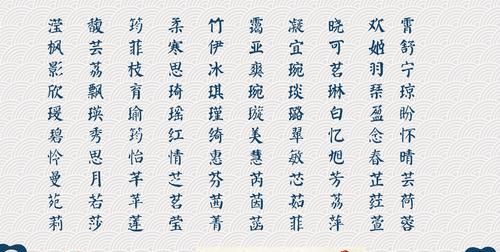 滢 馥 筠 柔 竹 霭 凝 晓 欢 霄
枫 芸 菲 寒 伊 亚 宜 可 姬 舒
影 荔 枝 思 冰 爽 琬 茗 羽 宁
欣 飘 育 琦 琪 琬 琰 琳 琹 琼
瑗 瑛 瑜 瑶 瑾 璇 璐 白 盈 盼
碧 秀 筠 红 绮 美 翠 忆 念 怀
怜 思 怡 情 惠 慧 敏 旭 春 晴
曼 月 芊 芝 芬 芮 芯 芳 芷 芸
苑 若 苹 茗 茜 茵 茹 荔 荏 荷
莉 莎 莲 莹 菁 菡 菲 萍 萱 蓉